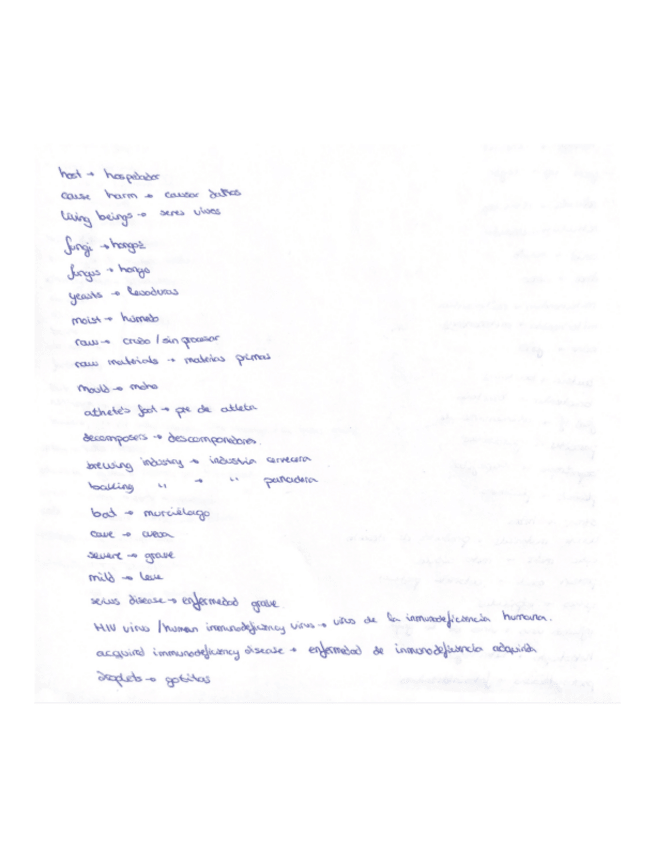 host → hospedador
cause harm → causar daños
living beings → seres vivos
fungi → hongos
fungus → hongo
yeasts → levaduras
moist → húmedo
raw → crudo / sin procesar
raw materials → materias primas
mould → moho
athlete's foot → pie de atleta
decomposers → descomponedores.
brewing industry → industria cervecera
baking " → " panadera
bat → murciélago
cave → cueva
severe → grave
mild → leve
serius disease → enfermedad grave
HIV virus / human immunodeficiency virus → virus de la inmunodeficiencia humana.
acquired immunodeficiency disease → enfermedad de inmunodeficiencia adquirida
droplets → gotitas